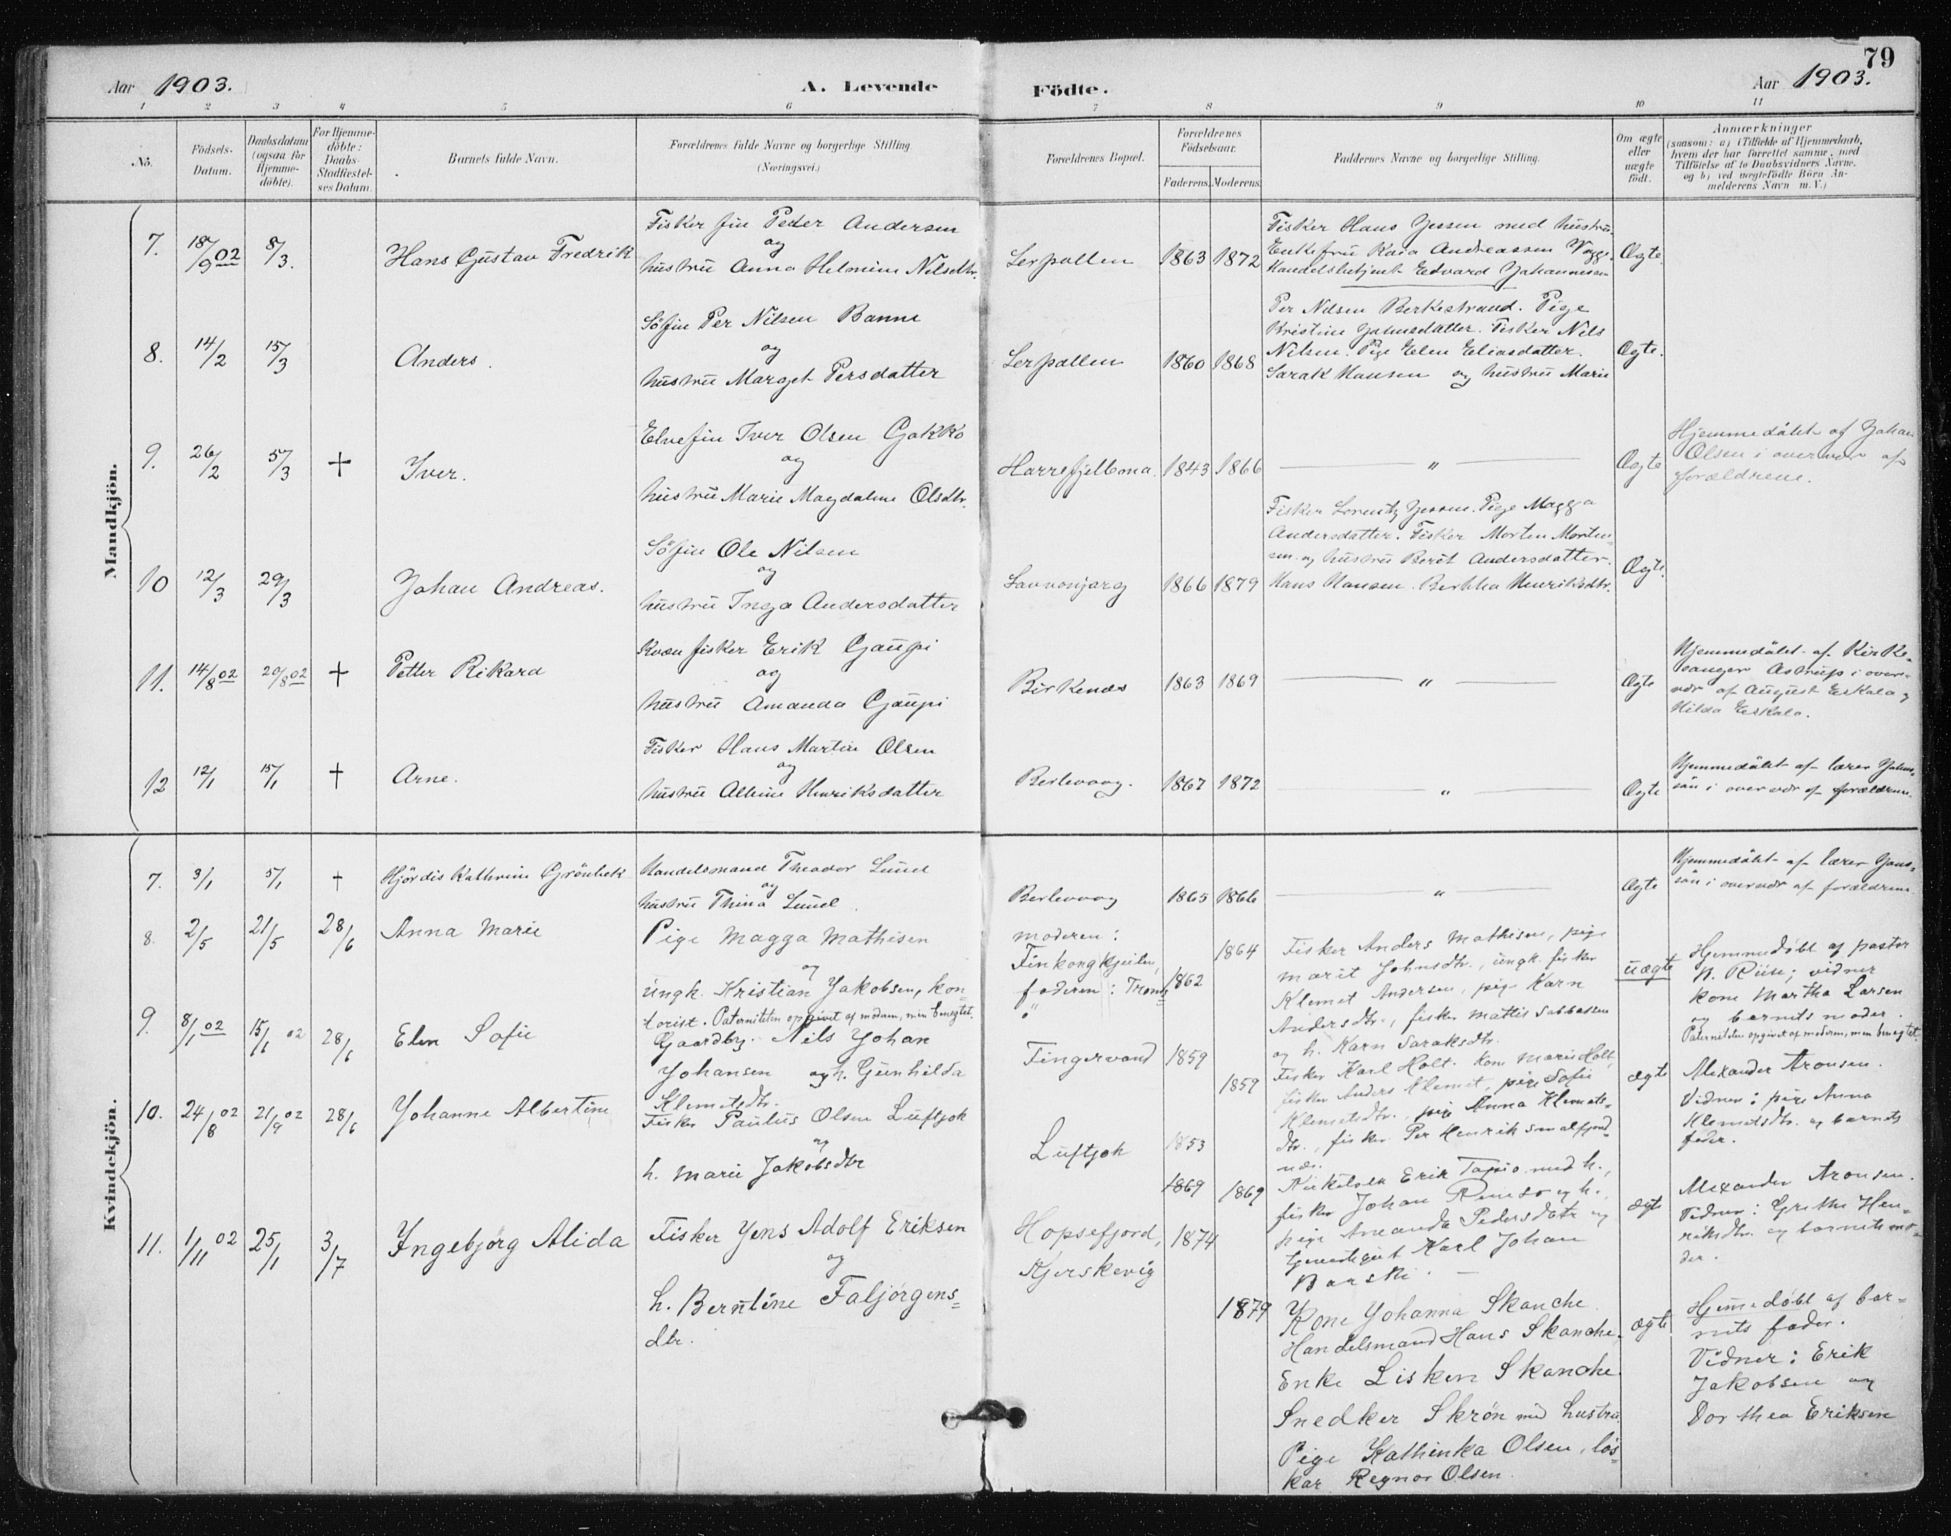 79
Aar 1903.
A. Levende
Födte.
Aar 1903.
1 2 3 4 5 6 7 8 9 10 11
No.
Födsels-
Datum.
Daabsdatum
(ogsaa for
Hjemme-
döbte).
For Hjemme-
döbte:
Daabs-
Stadfæstel-
ses Datum.
Barnets fulde Navn.
Forældrenes fulde Navne og borgerlige Stilling
(Næringsvei.)
Forældrenes Bopæl.
Forældrenes
Födselsaar.
Faderens. Moderens.
Faddernes Navne og borgerlige Stilling.
Om ægte
eller
uægte
födt.
Anmærkninger
(saasom: a) i Tilfælde af Hjemmedaab,
hvem der har forrettet samme, med
Tilföielse af to Daabsvidners Navne,
og b) ved uægtefödte Börn An-
melderens Navn m. V.)
Mandkjön.
7. 18/9 02 8/3. Hans Gustav Fredrik
Fisker fin Peder Andersen
og
hustru Anna Helmine Nilsdtr.
Lerpollen 1863 1872
Fisker Hans Jessen med hustru.
Enkefru Kaia Andreassen Vagge.
Handelsbetjent Edvard Johannesen
Ægte.
8. 14/2 15/3 Anders.
Söfin Per Nilsen Banne
og
hustru Marget Persdatter
Lerpollen 1860 1868
Per Nilsen Berkestrand. Pige
Kristine Johnsdatter. Fisker Nils
Nilsen. Pige Elen Eliasdatter.
Sarak Hansen og hustru Marie
Ægte.
9. 26/2 5/3 + Iver.
Elvefin Iver Olsen Gakko
og
hustru Marie Magdalene Olsdtr.
Harrefjellbma. 1843 1866
"
Ægte
Hjemmedöbt af Johan
Olsen i overvær af
forældrene.
10 12/3 29/3 Johan Andreas.
Söfin Ole Nilsen
og
hustru Inga Andersdatter
Lavvonjarg 1866 1879
Fisker Lorentz Jessen. Pige Magga
Andersdatter. Fisker Morten Morten-
sen og hustru Berit Andersdatter.
Hans Hansen. Birkka Henriksdtr.
Ægte.
11. 14/8 02 20/8 02 + Petter Rikard
Kvæn fisker Erik Gaupi
og
hustru Amanda Gaupi
Birkenæs 1863 1869
"
Ægte
Hjemmedöbt af Kirke-
sanger Astrup i over-
vær af August Eskola og
Hilda Eskola.
12 12/1 15/1 + Arne.
Fisker Hans Martin Olsen
og
hustru Albine Henriksdatter
Berlevaag. 1867 1872
"
Ægte
Hjemmedöbt af lærer Johns-
sön i overvær af forældrene.
Kvindekjön.
7. 3/1 5/1 + Hjördis Kathrine Grönbek
Handelsmand Theodor Lund
og
hustru Thina Lund.
Berlevaag 1865 1866
"
Ægte
Hjemmedöbt af lærer Jons-
sön i overvær af forældrene.
8. 2/5 21/5 28/6 Anna Marie
Pige Magga Mathisen
og
ungk. Kristian Jakobsen, kon-
torist. Paterniteten opgivet af modern, men benegtet.
moderen:
Finkongkjeilen,
faderen: Troms
1862 1864
Fisker Anders Mathisen, pige
Marit Johnsdtr., ungk. fisker
Klemet Andersen, pige Karn
Andersdtr., fisker Mattis Sabbasen
og h. Karn Saraksdtr.
uægte
Hjemmedöbt af pastor
N. Riise; vidner
kone Martha Larsen
og barnets moder.
Paterniteten opgivet af moderen, men benegtet.
9. 8/1 02 15/1 02 28/6 Elen Sofie
Gaardbr. Nils Johan
Johansen og h. Gunhilda
Klemetsdtr.
Fingervand 1859 1859
Fisker Karl Holt, kone Marie Holt,
fisker Anders Klemet, pige Sofie
Klemetsdtr., pige Anna Klemets-
dtr., fisker Per Henrik Smalfjord-
næs.
ægte
Alexander Aronsen.
Vidner: pige Anna
Klemetsdtr. og barnets
fader.
10. 24/8 02 21/9 02 28/6 Johanne Albertine
Fisker Paulus Olsen Luftjok
og
h. Marie Jakobsdtr
Luftjok 1853
1869 1869
Erik Tapio med h.,
fisker Johan og h.
pige Amanda Pedersdtr og
Karl Johan
ægt
Alexander Aronsen.
Vidner: Grethe Hen-
riksdtr. og barnets mo-
der.
11. 1/11 02 25/1 3/7 Ingebjörg Alida
Fisker Jens Adolf Eriksen
og
h. Berntine Faljörgens-
dtr.
Hopsefjord,
Kjerskevig
1874 1879
Kone Johanna Skanche.
Handelsmand Hans Skanche.
Enke Lisken Skanche.
Snedker Skrön med hustru.
Pige Kathinka Olsen, lös-
kar Regnor Olsen.
ægte
Hjemmedöbt af bar-
nets fader.
Vidner: Erik
Jakobsen og
Dorthea Eriksen